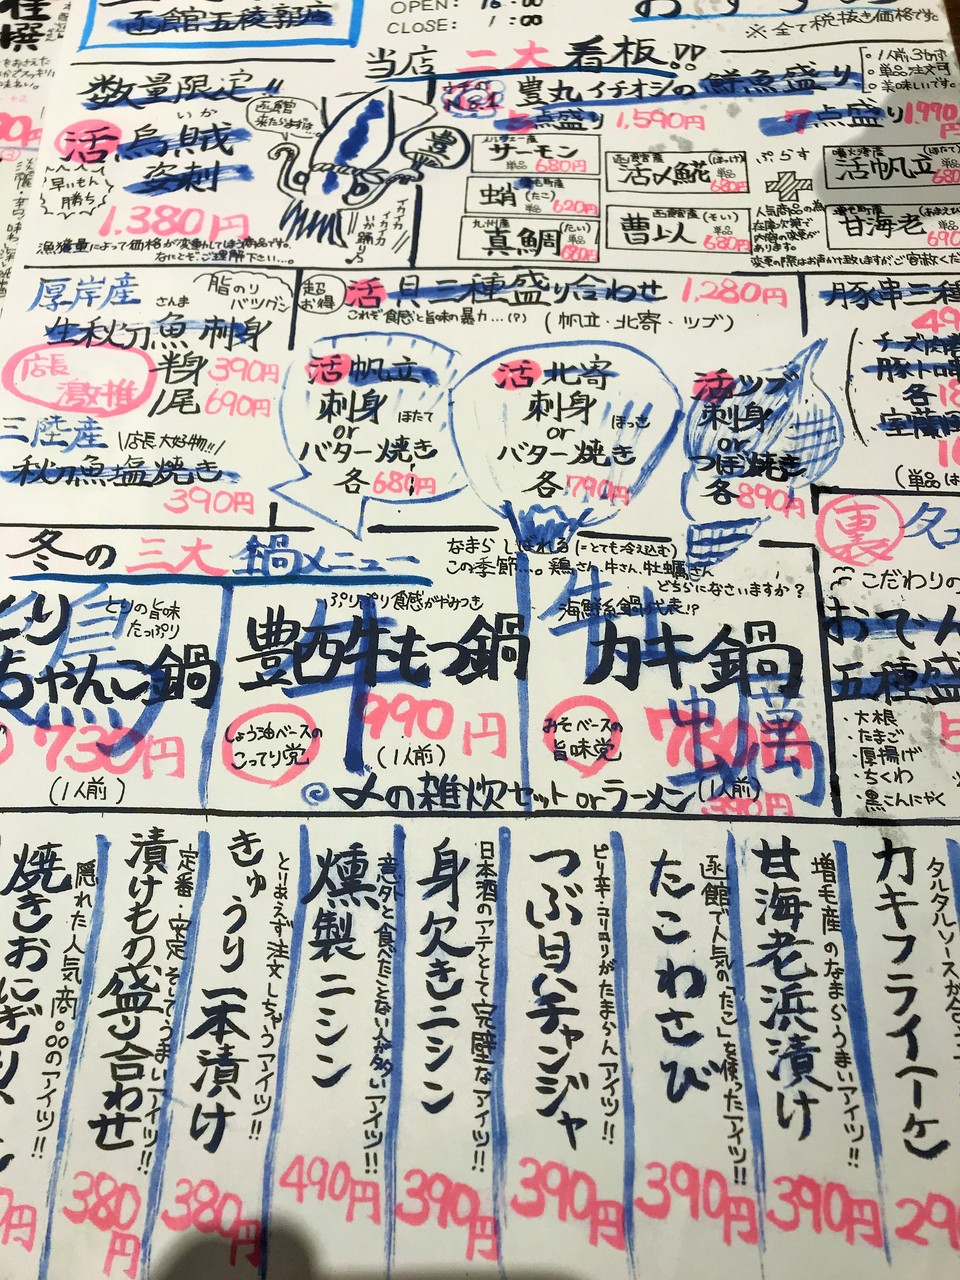 函館五稜郭店
OPEN: 16:00
CLOSE: 1:00
※全て税抜き価格です。
数量限定!!
活烏賊
いか
姿刺
早いもん
勝ち
1.380円
漁獲量によって価格が変動してしまう商品です。
なにとぞ、ご理解下さい…。
函館
来たらまずは
イカイカ
イカイカ
いか踊り♪
豊
当店 二大 看板!!
豊丸イチオシの 鮮魚盛り
・1人前、3切ず
・単品注文可
・美味しいです。
5点盛り 1,590円
7点盛り 1,990円
サーモン
単品 680円
蛸(たこ)
単品 620円
九州産
真鯛(たい)
単品 680円
函館産
活〆𩸽(ほっけ)
単品 680円
函館産(そい)
曹以
単品 680円
ぷらす
噴火湾産(ほたて)
活帆立
単品 680
増毛町産(あまえび)
甘海老
単品 690
変更の際はお声かけ致しますが、ご容赦くだ
厚岸産
さんま
生秋刀魚刺身
脂のり
バツグン
店長
激推
半身 390円
1尾 690円
三陸産
\店長大好物!!/
秋刀魚塩焼き
390円
超
お得
活貝三種盛り合わせ 1,280円
これぞ食感と旨味の暴力…(?) (帆立・北寄・ツブ)
活帆立
刺身 ほたて
or
バター焼き
各680円
活北寄
刺身 ほっき
or
バター焼き
各790円
活ツブ
刺身
or
つぼ焼き
各890円
豚串三種
チーズ肉巻
豚トロ
各18
室蘭
(単品は
冬の三大鍋メニュー
なまら しばれる(=とても冷え込む)
この季節…。鶏さん、牛さん、牡蠣さん
どちらになさいますか?
とりの旨味
たっぷり
とり
ちゃんこ鍋
730円
(1人前)
ぷりぷり食感がやみつき
豊西牛もつ鍋
しょう油ベースの
こってり党
990円
(1人前)
海鮮系鍋代表!?
カキ鍋
みそベースの
旨味党
780円
(1人前)
◎〆の雑炊セットorラーメン 390円
裏
こだわりの
おでん
五種盛
・大根
・たまご
・厚揚げ
・ちくわ
・黒こんにゃく
タルタルソースが合
カキフライ
29
増毛産のなまらうまいアイツ!!
甘海老浜漬け
390円
函館で人気の「たこ」を使ったアイツ!!
たこわさび
390円
ピリ辛・コリコリがたまらんアイツ!!
つぶ貝チャンジャ
390円
日本酒のアテとして完璧なアイツ!!
身欠きニシン
390円
意外と食べたことない人が多いアイツ!!
燻製ニシン
490円
とりあえず注文しちゃうアイツ!!
きゅうり一本漬け
380円
定番・安定そしてうまいアイツ!!
漬けもの盛り合わせ
380円
隠れた人気商品のアイツ!!
焼きおにぎり
円